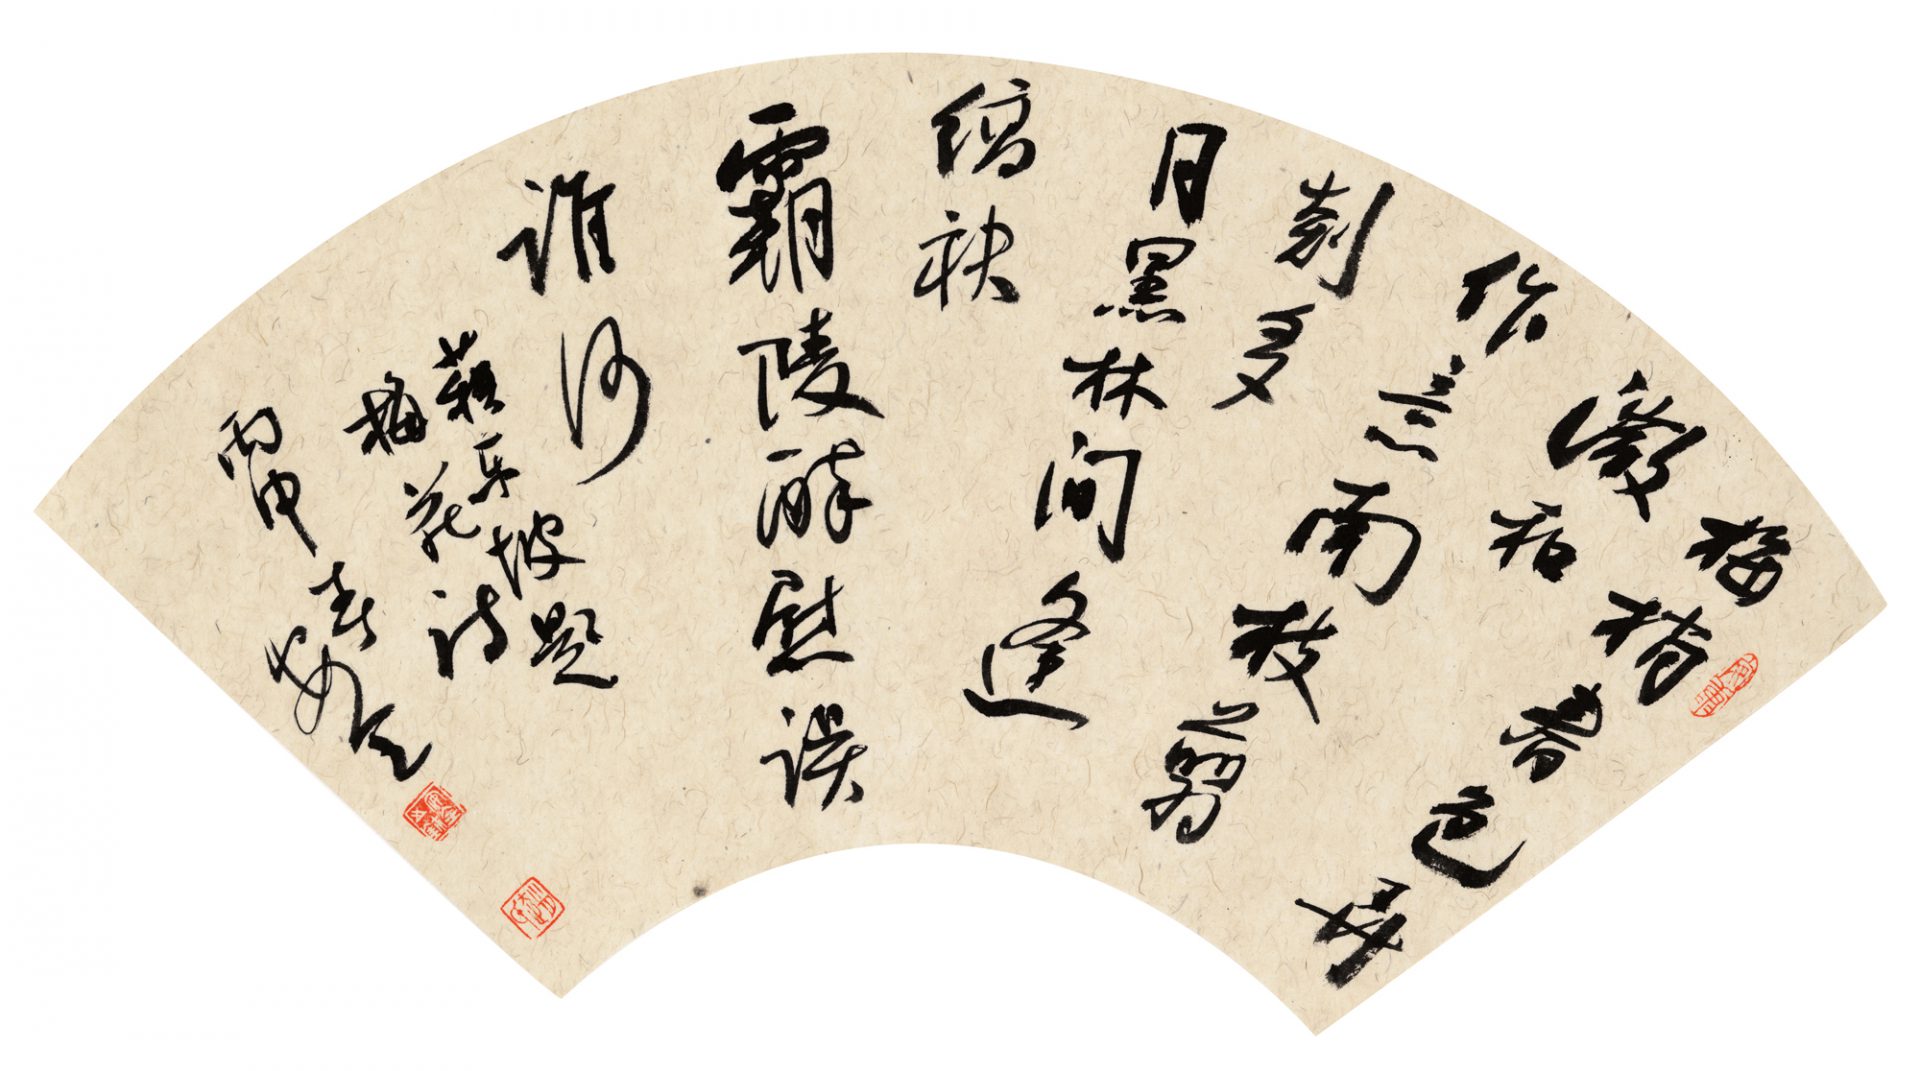 梅梢春色弄
微和
作意南枝翦
刻多
月黑林间逢
缟袂
霸陵醉慰误
谁何
蘇东坡题
梅花诗
丙申春